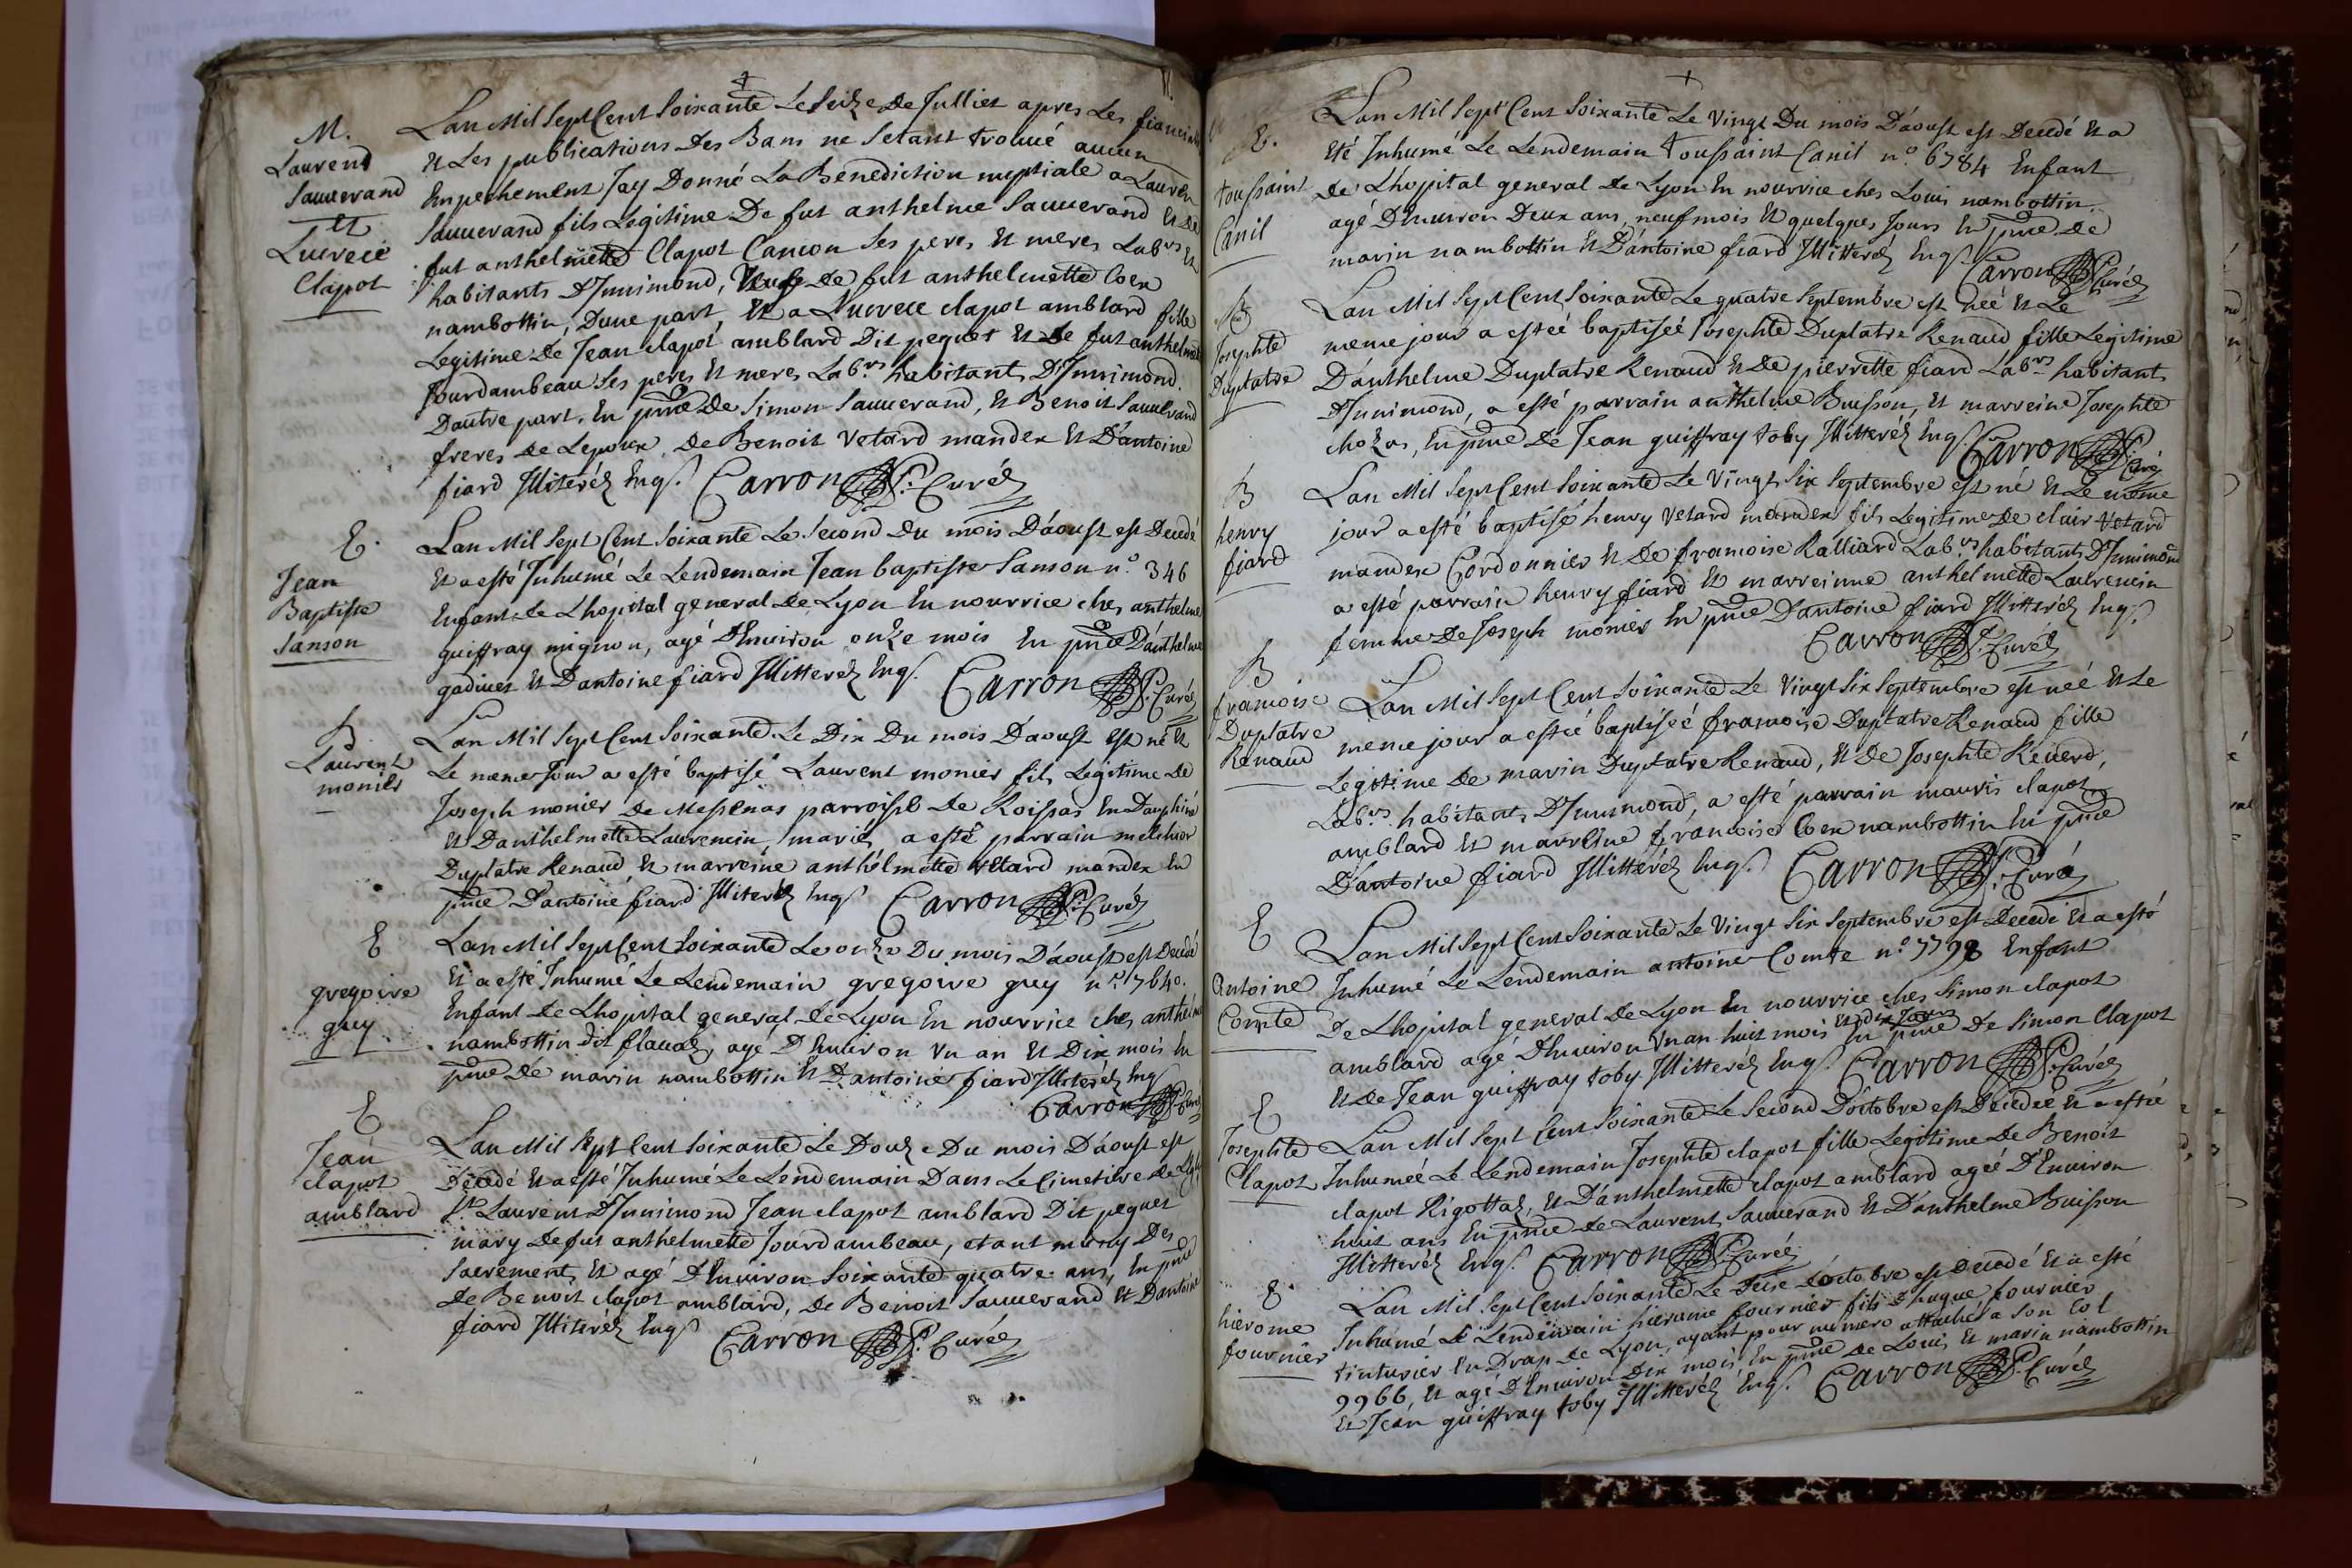 M.
Laurend
Sauverand
et
Lucrece
Clapot
Lan Mil Sept Cent Soixante Le Seize De Julliet apres Les fiancia
Et Les publications Des Bans ne Setant trouvé aucun
Empechement Jay Donné La Benediction nuptiale a Lauren
Sauverand fils Legitime De fut anthelme Sauverand Et De
fut anthelmette Clapot Cancon Ses peres Et meres Labrs Et
habitants D'Innimond, Veuf De fut anthelmette Coex
nambottin, Dune part, Et a Lucrece clapot amblard fille
Legitime De Jean clapot amblard Dit peguet Et De fut anthelmet
Jourdambeau Ses peres Et meres Labrs habitants D'Innimond.
Dautre part. En pnce De Simon Sauverand, Et Benoit Sauverand
freres de Lepoux, De Benoit Vetard mandex Et D'antoine
fiard Illiteréz Enqs. Carron Curéz
E.
Jean
Baptiste
Sanson
Lan Mil Sept Cent Soixante Le Second Du mois D'aoust est Decedé
Et a esté Inhumé Le Lendemain Jean baptiste Sanson n.o 346
Enfant de Lhopital general de Lyon En nourrice ches anthelme
guiffray mignon, agé D'Environ onze mois En pnce D'anthelme
gadiver Et D'antoine fiard Illitteréz Enqs. Carron Curéz
B
Laurent
monier
Lan Mil Sept Cent Soixante Le Dix Du mois D'aoust est né Et
Le meme Jour a esté baptisé Laurent monier fils Legitime De
Joseph monier de Messenas parroisse De Roissas En Dauphiné
Et D'anthelmette Laurencin mariés a esté parrain melchior
Duplatre Renaud Et marreine anthélmette Vetard mandex En
pnce D'antoine fiard Illiteréz Enqs Carron Curéz
E
gregoire
guy
Lan Mil Sept Cent Soixante Le onze Du mois D'aoust est Decedé
Et a esté Inhumé Le Lendemain gregoire guy n.o 7640.
Enfant De Lhopital general de Lyon En nourrice ches anthelme
nambottin dit flavaz, agé D'Environ Un an Et Dix mois En
pnce De marin nambottin Et D'antoine fiard Illiteréz Enqs
Carron Curéz
E
Jean
clapot
amblard
Lan Mil Sept Cent Soixante Le Douze Du mois D'aoust est
Decedé Et a esté Inhumé Le Lendemain Dans Le Cimetiere de
St Laurent D'Innimond Jean clapot amblard Dit peguet
mary De fut anthelmette Jourdambeau, etant muny Des
Sacrements Et agé D'Environ Soixante quatre ans, En pnce
De Benoit clapot amblard, de Benoit Sauverand Et D'antoine
fiard Illiteréz Enqs Carron Curéz
E.
toussaint
Canil
Lan Mil Sept Cent Soixante Le Vingt Du mois D'aoust est Decedé Et a
Eté Inhumé Le Lendemain toussaint Canil n.o 6784 Enfant
de Lhopital general de Lyon En nourrice ches Louis nambottin.
agé D'Environ Deux ans neuf mois Et quelques Jours En pnce de
marin nambottin Et D'antoine fiard Illitteréz Enqs. Carron Curéz
B
Josephte
Duplatre
Lan Mil Sept Cent Soixante Le quatre Septembre est néé Et Le
meme jour a estéé baptiséé Josephte Duplatre Renaud fille Legitime
D'anthelme Duplatre Renaud Et De pierrette fiard Labrs habitants
D'Innimond, a esté parrain anthelme Buisson, Et marreine Josephte
chozas, En pnce De Jean guiffray toby Illitteréz Enqs. Carron Curéz
B
henry
fiard
Lan Mil Sept Cent Soixante Le Vingt Six Septembre est né Et Le meme
jour a esté baptisé henry Vetard mandex fils Legitime De clair Vetard
mandex Cordonnier Et De francoise Ralliard Labrs habitants D'Innimond
a esté parrain henry fiard Et marreinne anthelmette Laurencin
femme De Joseph monier En pnce D'antoine fiard Illitteréz Enqs.
Carron Curéz
B
francoise
Duplatre
Renaud
Lan Mil Sept Cent Soixante Le Vingt Six Septembre est néé Et Le
meme jour a estéé baptiséé francoise Duplatre Renaud fille
Legitime De marin Duplatre Renaud, Et De Josephte Reverd,
Labrs habitants D'Innimond, a esté parrain mauris clapot
amblard Et marreine francoise Coex nambottin En pnce
D'antoine fiard Illitteréz Enqs. Carron Curé
E
Antoine
Comte
Lan Mil Sept Cent Soixante Le Vingt Six Septembre est Decedé Et a esté
Inhumé Le Lendemain antoine Comte n.o 7798 Enfant
De Lhopital general de Lyon En nourrice ches Simon clapot
amblard agé D'Environ Un an huit mois Et dix Jours En pnce De Simon Clapot
Et De Jean guiffray toby Illitteréz Enqs. Carron Curéz
E
Josephte
Clapot
Lan Mil Sept Cent Soixante Le Second D'octobre est Decedéé Et a estéé
Inhuméé Le Lendemain Josephte clapot fille Legitime De Benoit
clapot Rigottaz, Et D'anthelmette clapot amblard agéé D'Environ
huit ans En pnce de Laurent Sauverand Et D'anthelme Buisson
Illitteréz Enqs. Carron Curéz
E.
hierome
fournier
Lan Mil Sept Cent Soixante Le D'octobre est Decedé Et a esté
Inhumé Le Lendemain hierome fournier fils D'hugue fournier
tinturier En Drap de Lyon, ayant pour numero attachés a Son Col
9966, Et agé D'Environ Dix mois En pnce de Louis Et marin nambottin
Et Jean guiffray toby Illitteréz Enqs. Carron Curéz